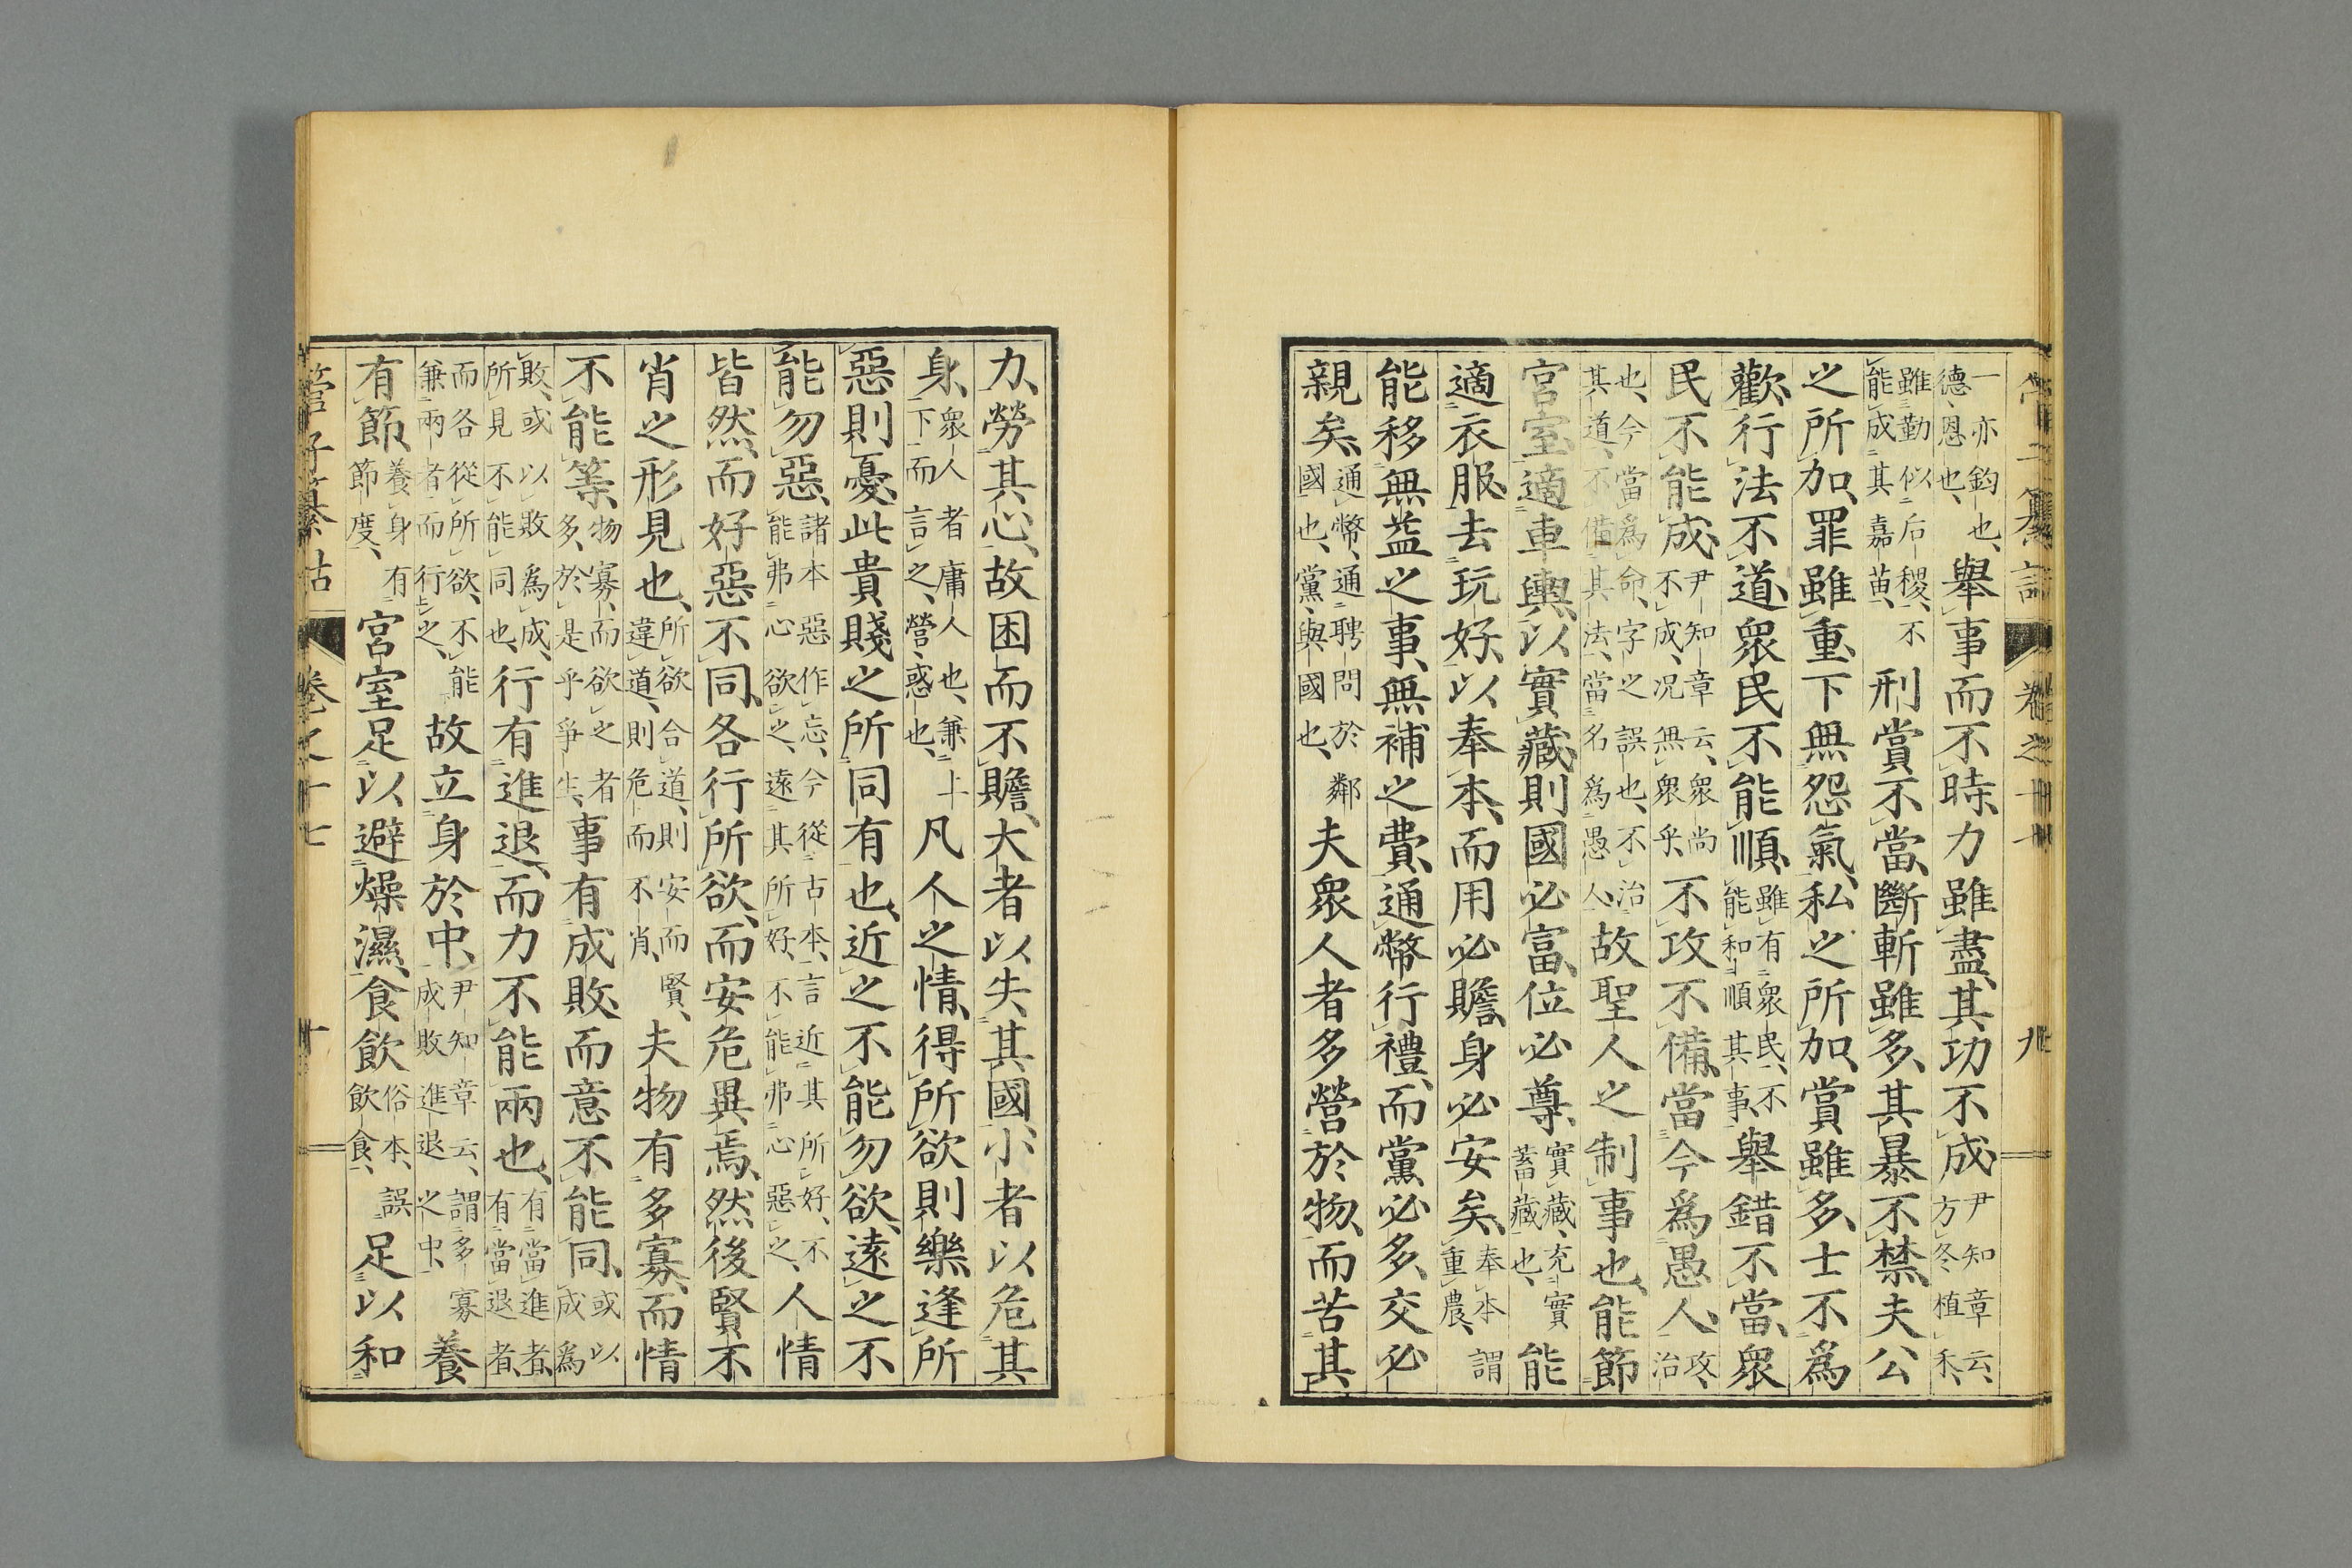 管子纂詁 卷之十七 九
一亦鈞也、德、恩也、舉事而不時、力雖盡、其功不成、尹知章云、方冬植禾、
雖勤似后稷、不能成其嘉苗、刑賞不當、斷斬雖多、其暴不禁、夫公
之所加、罪雖重、下無怨氣、私之所加、賞雖多、士不爲
歡、行法不道、眾民不能順、雖有眾民、不能和順其事、舉錯不當、眾
民不能成、尹知章云、眾尚不成、况無眾乎、不攻不備、當今爲愚人、攻、治
也、今當爲命、字之誤也、不治其道、不備其法、當名爲愚人、故聖人之制事也、能節
宮室、適車輿、以實藏、則國必富、位必尊、實藏、充實蓄藏也、能
適衣服、去玩好、以奉本、而用必贍、身必安矣、奉本謂重農、
能移無益之事、無補之費、通幣行禮、而黨必多、交必
親矣、通幣、通聘問於鄰國也、黨、與國也、夫眾人者多營於物、而苦其
力、勞其心、故困而不贍、大者以失其國、小者以危其
身、眾人者庸人也、兼上下而言之、營、惑也、凡人之情、得所欲則樂、逢所
惡則憂、此貴賤之所同有也、近之不能勿欲、遠之不
能勿惡、諸本惡作忘、今從古本、言近其所好、不能弗心欲之、遠其所好、不能弗心惡之、人情
皆然、而好惡不同、各行所欲、而安危異焉、然後賢不
肖之形見也、所欲合道、則安而賢、違道、則危而不肖、夫物有多寡、而情
不能等、物寡、而欲之者多、於是乎爭生、事有成敗、而意不能同、或以成爲
敗、或以敗爲成、所見不能同也、行有進退、而力不能兩也、有當進者、有當退者、
而各從所欲、不能兼兩者而行之、故立身於中、尹知章云、謂多寡成敗進退之中、養
有節、養身有節度、宮室足以避燥濕、食飲俗本、誤飲食、足以和
管子纂詁 卷之十七 十